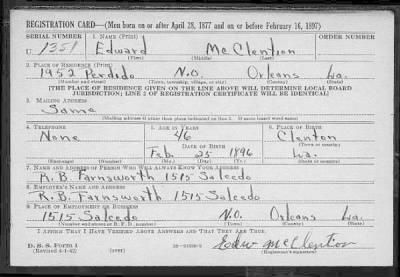 REGISTRATION CARD—(Men born on or after April 28, 1877 and on or before February 16, 1897)
SERIAL NUMBER 1. NAME (Print) ORDER NUMBER
U 1351 Edward McClention
(First) (Middle) (Last)
2. PLACE OF RESIDENCE (Print)
1952 Perdido N.O. Orleans La.
(Number and street) (Town, township, village, or city) (County) (State)
[THE PLACE OF RESIDENCE GIVEN ON THE LINE ABOVE WILL DETERMINE LOCAL BOARD
JURISDICTION; LINE 2 OF REGISTRATION CERTIFICATE WILL BE IDENTICAL]
3. MAILING ADDRESS
Same
[Mailing address if other than place indicated on line 2. If same insert word same]
4. TELEPHONE 5. AGE IN YEARS 6. PLACE OF BIRTH
None 46 Clenton
DATE OF BIRTH (Town or county)
Feb. 25 1896 La.
(Exchange) (Number) (Mo.) (Day) (Yr.) (State or country)
7. NAME AND ADDRESS OF PERSON WHO WILL ALWAYS KNOW YOUR ADDRESS
R. B. Farnsworth 1515 Salcedo
8. EMPLOYER'S NAME AND ADDRESS
R. B. Farnsworth 1515 Salcedo
9. PLACE OF EMPLOYMENT OR BUSINESS
1515 Salcedo N.O. Orleans La.
(Number and street or R. F. D. number) (Town) (County) (State)
I AFFIRM THAT I HAVE VERIFIED ABOVE ANSWERS AND THAT THEY ARE TRUE.
D. S. S. Form 1
(Revised 4-1-42) (over) Edw McClention
(Registrant's signature)